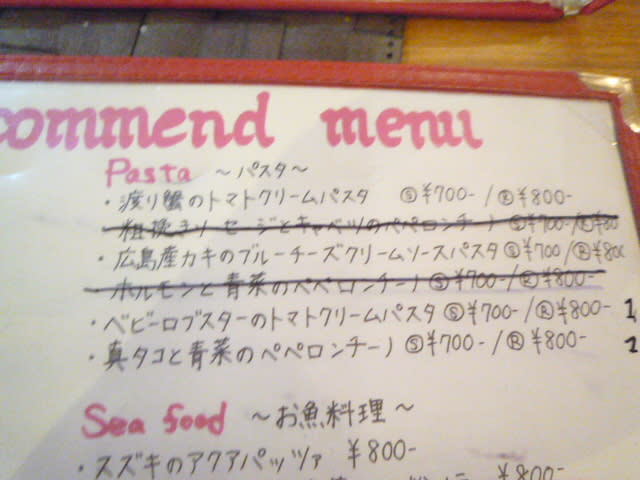 commend menu
Pasta ～パスタ～
・渡り蟹のトマトクリームパスタ Ⓢ¥700-/Ⓡ¥800-
粗挽きソーセージとキャベツのペペロンチーノ Ⓢ¥700-/Ⓡ¥80
・広島産カキのブルーチーズクリームソースパスタ Ⓢ¥700/Ⓡ¥800
ホルモンと青菜のペペロンチーノ Ⓢ¥700-/Ⓡ¥800-
・ベビーロブスターのトマトクリームパスタ Ⓢ¥700-/Ⓡ¥800-
・真タコと青菜のペペロンチーノ Ⓢ¥700-/Ⓡ¥800-
Sea food ～お魚料理～
・スズキのアクアパッツァ ¥800-
¥800-